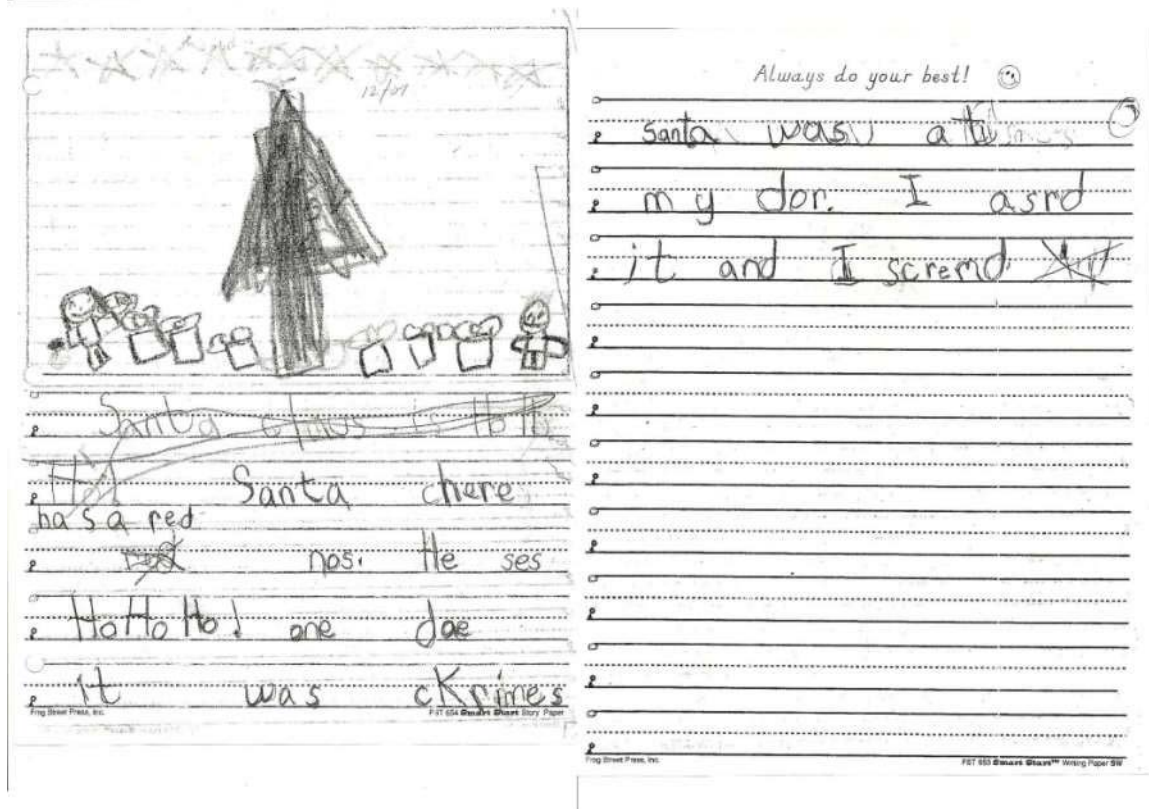 12/07
Santa
Ho! Santa chere
has a red
nos. He ses
HoHoHo! one dae
it was cKrimes
Frog Street Press, Inc. FST 654 Smart Start Story Paper
Always do your best!
santa was at
my dor. I asrd
it and I scremd.
Frog Street Press, Inc. FST 653 Smart Start™ Writing Paper SW